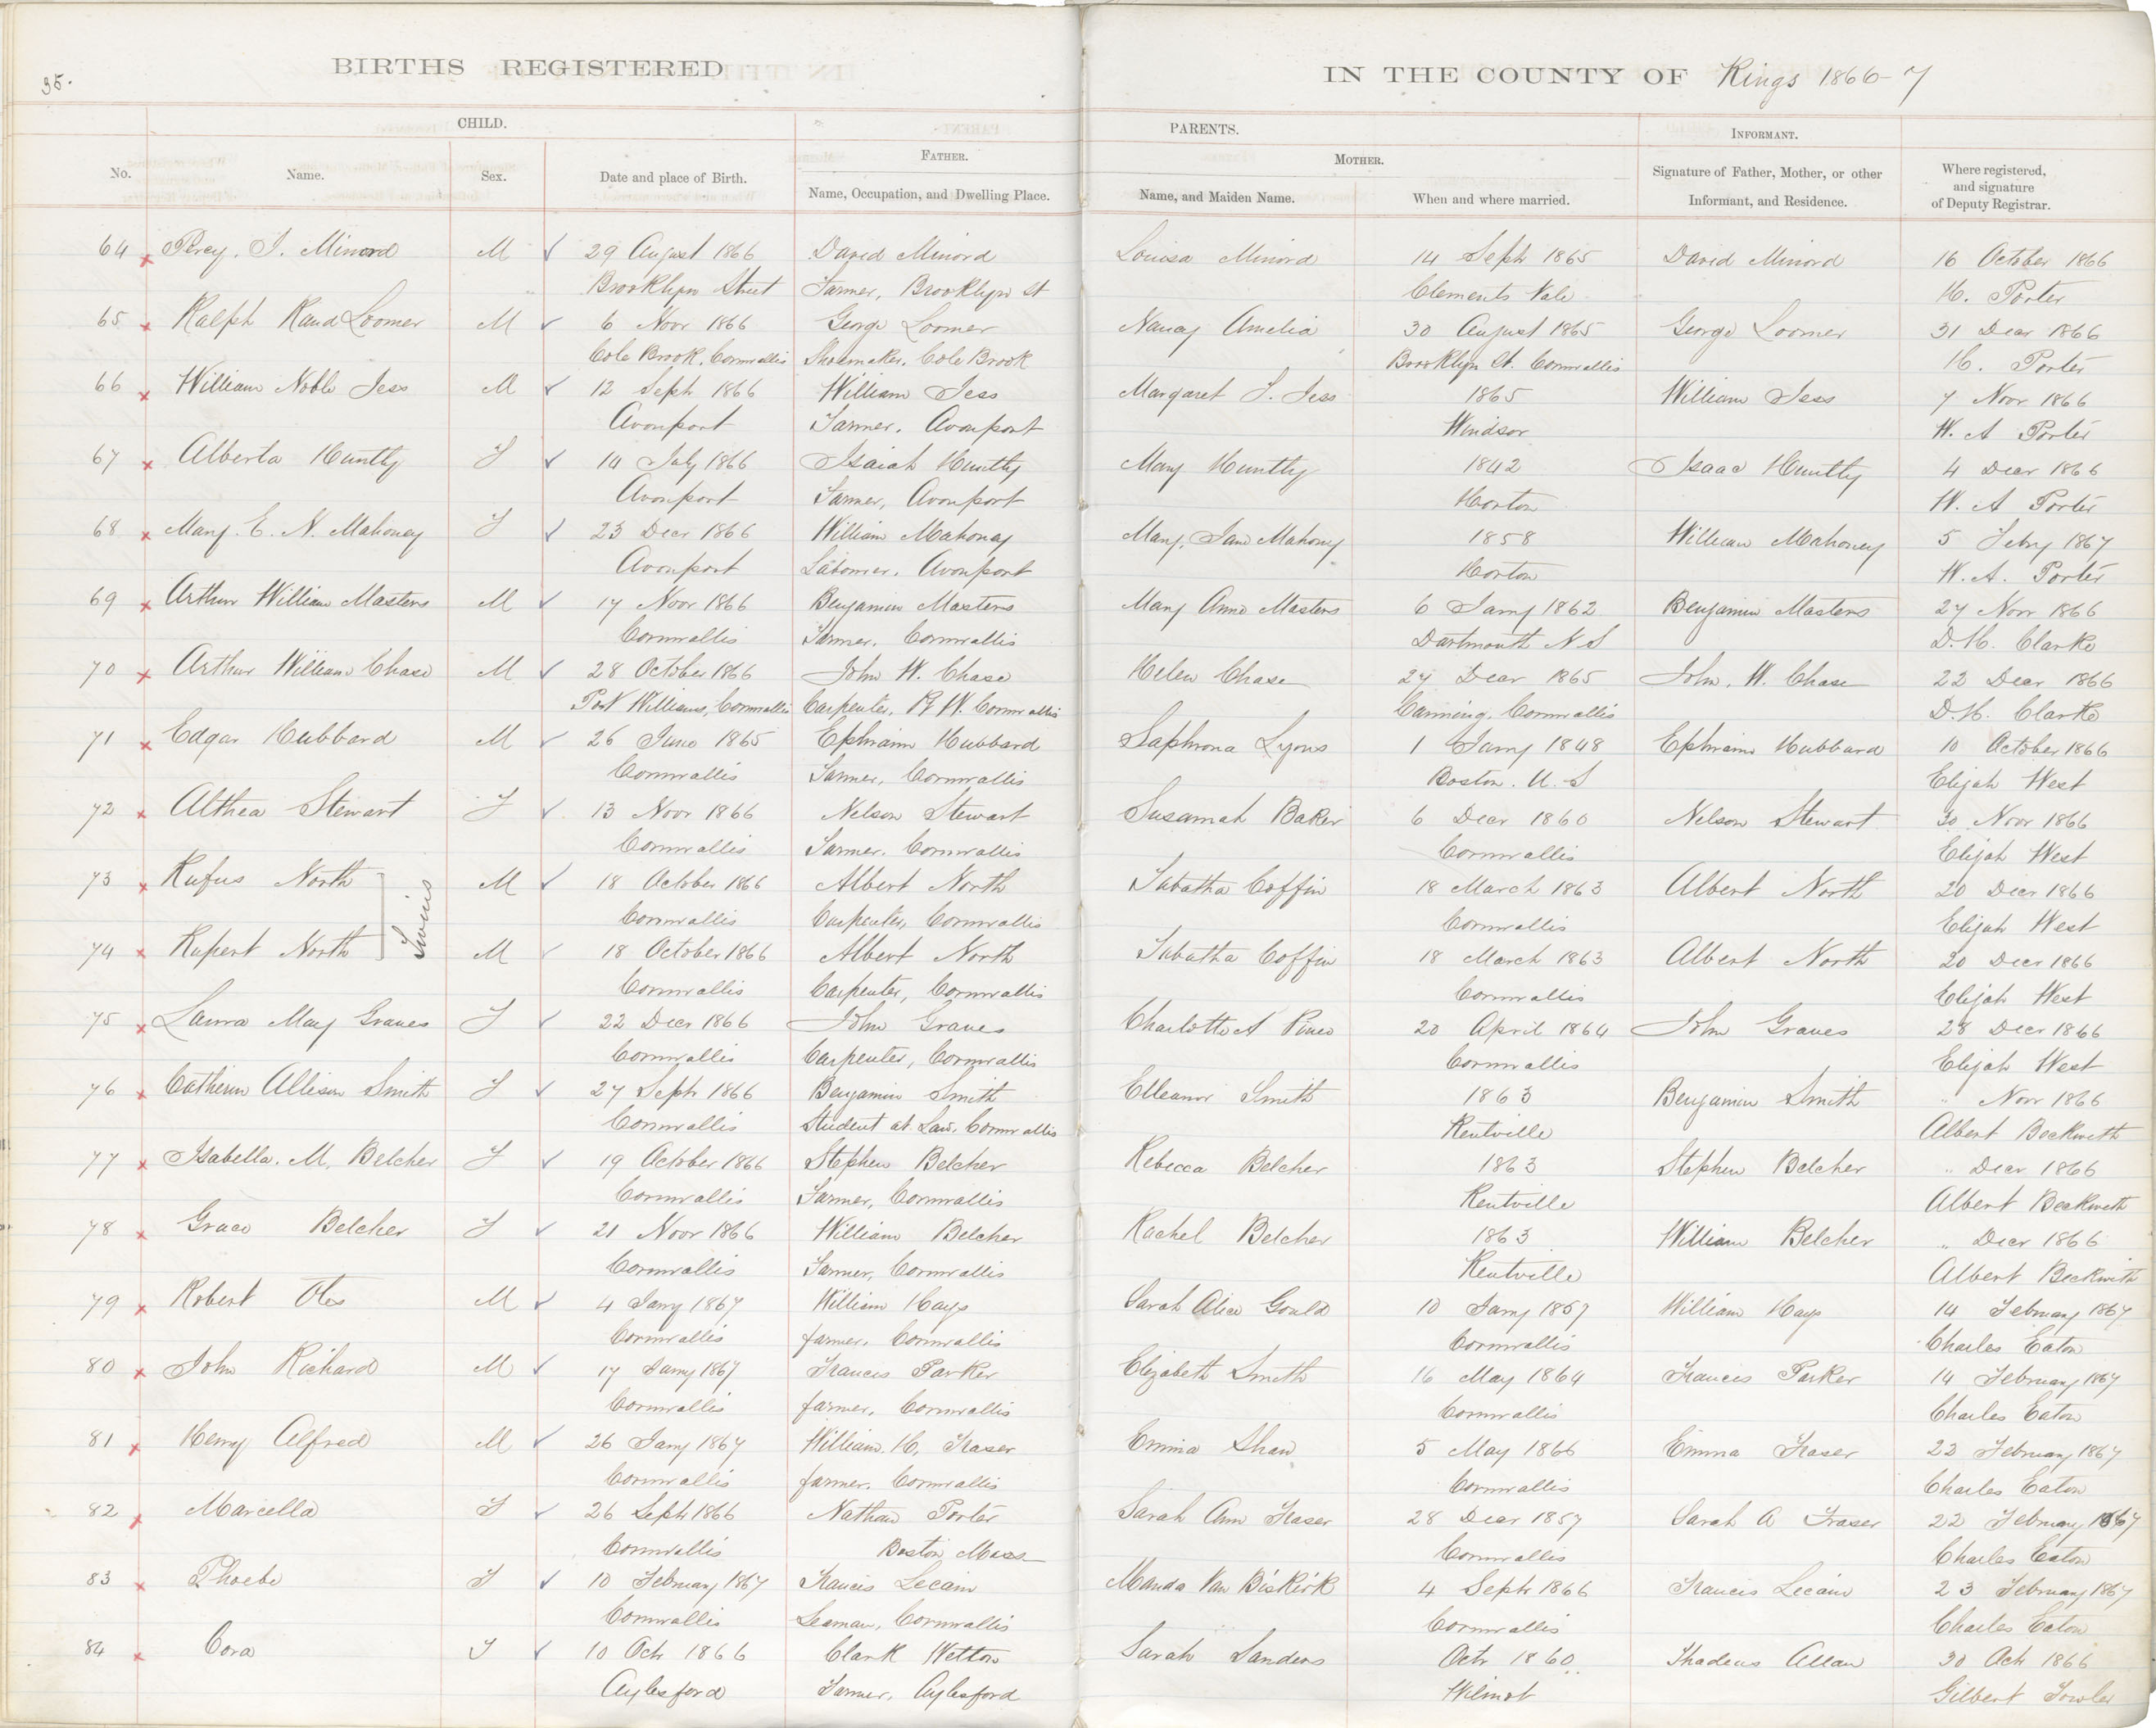 35.
BIRTHS REGISTERED
IN THE COUNTY OF Kings 1866-7
CHILD.
PARENTS.
INFORMANT.
FATHER.
MOTHER.
No.
Name.
Sex.
Date and place of Birth.
Name, Occupation, and Dwelling Place.
Name, and Maiden Name.
When and where married.
Signature of Father, Mother, or other Informant, and Residence.
Where registered, and signature of Deputy Registrar.
64 Percy. I. Minord M 29 August 1866 David Minord Louisa Minord 14 Sept 1865 David Minord 16 October 1866
Brooklyn Street Farmer, Brooklyn St Clements Vale H. Porter
65 Ralph Rand Loomer M 6 Novr 1866 George Loomer Nancy Amelia 30 August 1865 George Loomer 31 Decr 1866
Cole Brook. Cornwallis Shoemaker. Cole Brook Brooklyn St. Cornwallis H. Porter
66 William Noble Jess M 12 Sept 1866 William Jess Margaret S. Jess 1865 William Jess 7 Novr 1866
Avonport Farmer. Avonport Windsor W. A Porter
67 Alberta Huntly F 14 July 1866 Isaiah Huntly Mary Huntly 1842 Isaac Huntly 4 Decr 1866
Avonport Farmer, Avonport Horton W. A Porter
68 Mary. E. N. Mahoney F 23 Decr 1866 William Mahoney Mary. Jane Mahony 1858 William Mahoney 5 Feby 1867
Avonport Labourer. Avonport Horton W. A. Porter
69 Arthur William Masters M 17 Novr 1866 Benjamin Masters Mary Anne Masters 6 Jany 1862 Benjamin Masters 27 Novr 1866
Cornwallis Farmer. Cornwallis Dartmouth N S D. H. Clarke
70 Arthur William Chase M 28 October 1866 John W. Chase Helen Chase 27 Decr 1865 John. W. Chase 22 Decr 1866
Port Williams, Cornwallis Carpenter, P. W. Cornwallis Canning, Cornwallis D. H. Clarke
71 Edgar Hubbard M 26 June 1865 Ephraim Hubbard Saphrona Lyons 1 Jany 1848 Ephraim Hubbard 10 October 1866
Cornwallis Farmer, Cornwallis Boston. U. S Elijah West
72 Althea Stewart F 13 Novr 1866 Nelson Stewart Susannah Baker 6 Decr 1860 Nelson Stewart 30 Novr 1866
Cornwallis Farmer. Cornwallis Cornwallis Elijah West
73 Rufus North M 18 October 1866 Albert North Tabatha Coffin 18 March 1863 Albert North 20 Decr 1866
Twins
Cornwallis Carpenter, Cornwallis Cornwallis Elijah West
74 Rupert North M 18 October 1866 Albert North Tabatha Coffin 18 March 1863 Albert North 20 Decr 1866
Cornwallis Carpenter, Cornwallis Cornwallis Elijah West
75 Laura May Graves F 22 Decr 1866 John Graves Charlotte A Pineo 20 April 1864 John Graves 28 Decr 1866
Cornwallis Carpenter, Cornwallis Cornwallis Elijah West
76 Catherin Allison Smith F 27 Sept 1866 Benjamin Smith Elleanor Smith 1863 Benjamin Smith " Novr 1866
Cornwallis Student at Law, Cornwallis Kentville Albert Beckwith
77 Isabella. M. Belcher F 19 October 1866 Stephen Belcher Rebecca Belcher 1863 Stephen Belcher " Decr 1866
Cornwallis Farmer, Cornwallis Kentville Albert Beckwith
78 Grace Belcher F 21 Novr 1866 William Belcher Rachel Belcher 1863 William Belcher " Decr 1866
Cornwallis Farmer, Cornwallis Kentville Albert Beckwith
79 Robert Otes M 4 Jany 1867 William Hays Sarah Alice Gould 10 Jany 1857 William Hays 14 February 1867
Cornwallis farmer. Cornwallis Cornwallis Charles Eaton
80 John Richard M 17 Jany 1867 Francis Parker Elizabeth Smith 16 May 1864 Francis Parker 14 February 1867
Cornwallis farmer. Cornwallis Cornwallis Charles Eaton
81 Henry Alfred M 26 Jany 1867 William. H. Fraser Emma Shaw 5 May 1866 Emma Fraser 22 February 1867
Cornwallis farmer. Cornwallis Cornwallis Charles Eaton
82 Marcella F 26 Sept 1866 Nathan Porter Sarah Ann Fraser 28 Decr 1857 Sarah A Fraser 22 February 1867
Cornwallis Boston Mass Cornwallis Charles Eaton
83 Phoebe F 10 February 1867 Francis Lecain Manda Van Biskirk 4 Sept 1866 Francis Lecain 23 February 1867
Cornwallis Seaman, Cornwallis Cornwallis Charles Eaton
84 Cora F 10 Oct 1866 Clark Welton Sarah Sanders Octr 1860 Thadeus Allan 30 Oct 1866
Aylesford Farmer, Aylesford Wilmot Gilbert Fowler